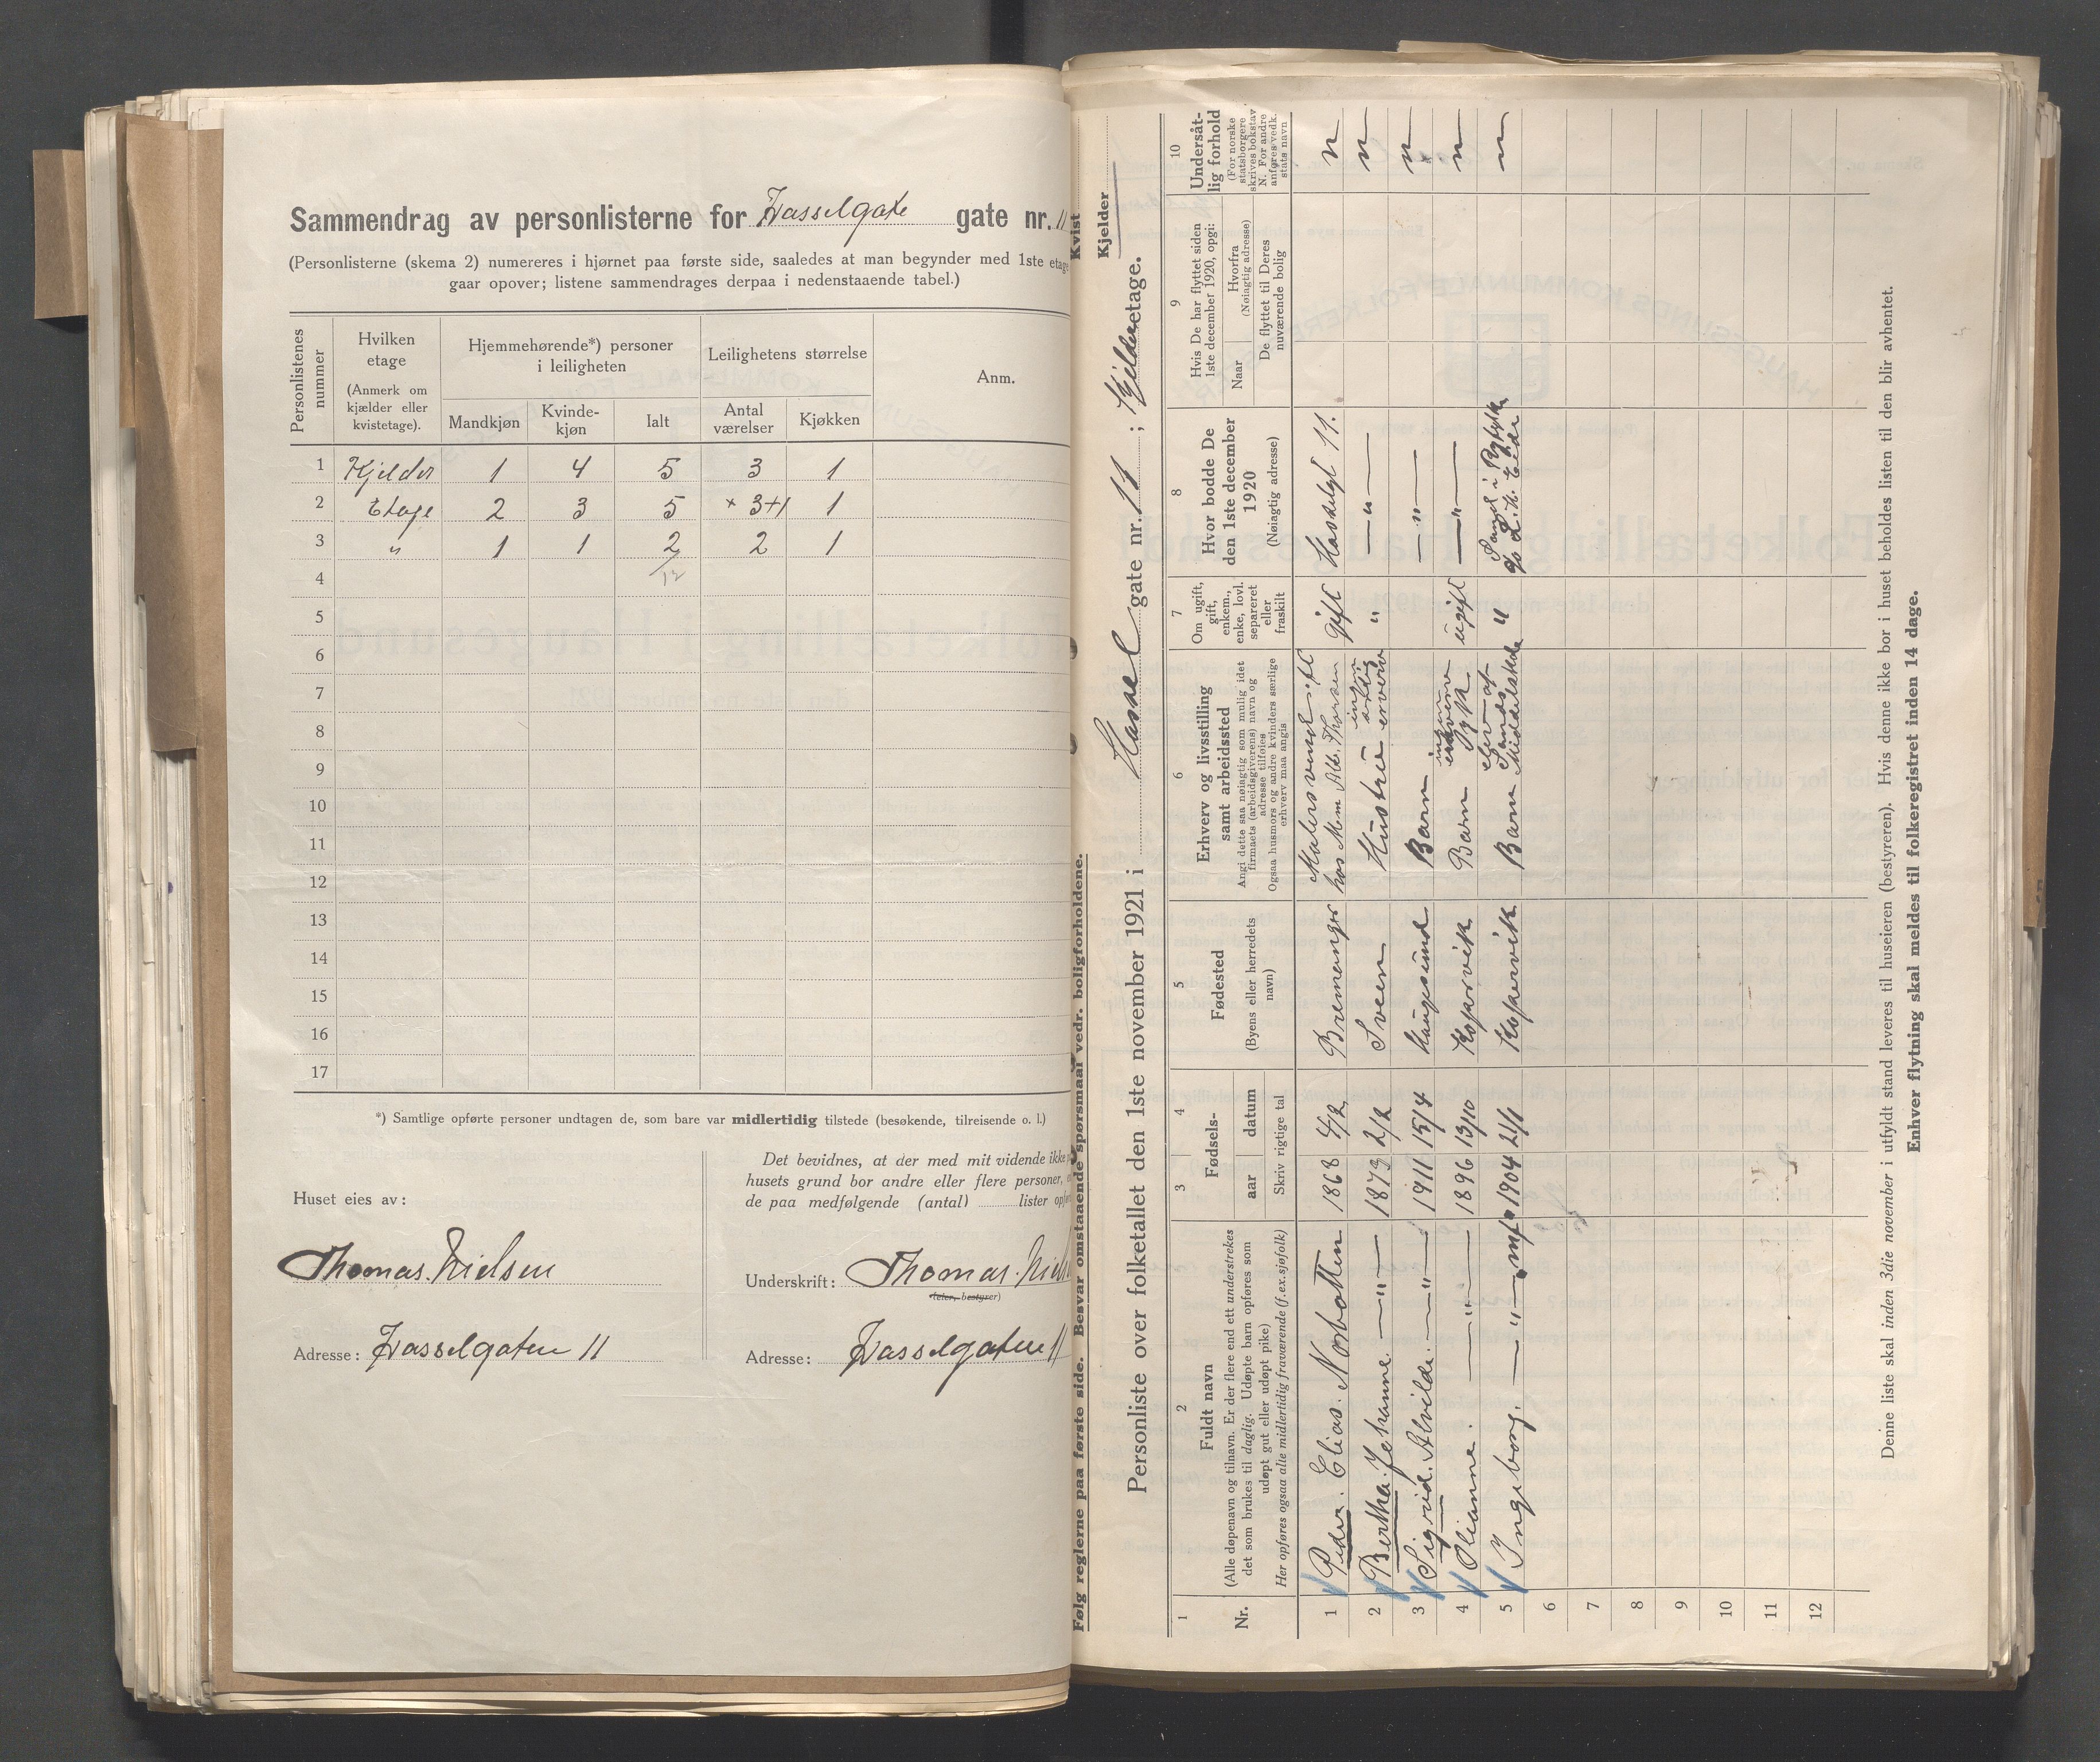 Sammendrag av personlisterne for Hasselgate gate nr. 11
(Personlisterne (skema 2) numereres i hjørnet paa første side, saaledes at man begynder med 1ste etage
gaar opover; listene sammendrages derpaa i nedenstaaende tabel.)
Personlistenes nummer
Hvilken etage
(Anmerk om kjælder eller kvistetage).
Hjemmehørende*) personer i leiligheten
Mandkjøn
Kvinde-kjøn
Ialt
Leilighetens størrelse
Antal værelser
Kjøkken
Anm.
1 Kjelder 1 4 5 3 1
2 Etage 2 3 5 × 3+1 1
3 " 1 1 2 2 1
4 12
5
6
7
8
9
10
11
12
13
14
15
16
17
*) Samtlige opførte personer undtagen de, som bare var midlertidig tilstede (besøkende, tilreisende o. l.)
Huset eies av:
Thomas Nielsen
Adresse: Hasselgaten 11
Det bevidnes, at der med mit vidende ikke
husets grund bor andre eller flere personer,
de paa medfølgende (antal) lister
Underskrift: Thomas Niels
(eier, bestyrer)
Adresse: Hasselgaten 11
Følg reglerne paa første side. Besvar omstaaende spørsmaal vedr. boligforholdene.
Kvist
Kjelder
Personliste over folketallet den 1ste november 1921 i Hassel gate nr. 11 ; Kjelder etage.
1
Nr.
2
Fuldt navn
(Alle døpenavn og tilnavn. Er der flere end ett understrekes
det som brukes til daglig. Udøpte barn opføres som
udøpt gut eller udøpt pike)
Her opføres ogsaa alle midlertidig fraværende (f.ex. sjøfolk)
3 4
Fødsels-
aar datum
Skriv rigtige tal
5
Fødested
(Byens eller herredets navn)
6
Erhverv og livsstilling
samt arbeidssted
Angi dette saa nøiagtig som mulig idet
firmaets (arbeidsgiverens) navn og
adresse tilføies
Ogsaa husmors og andre kvinders særlige
erhverv maa angis
7
Om ugift,
gift,
enkem.,
enke, lovl.
separeret
eller
fraskilt
8
Hvor bodde De
den 1ste december
1920
(Nøiagtig adresse)
9
Hvis De har flyttet siden
1ste december 1920, opgi:
Naar
Hvorfra
(Nøiagtig adresse)
De flyttet til Deres
nuværende bolig
10
Undersåt-
lig forhold
(For norske
statsborgere
skrives bokstav
N. For andre
anføres vedk.
stats navn
1 Peder. Elias. Norbotten 1868 4/2 Bremanger Malersvend hos Mm Alb. Thorsen gift Hasselgt 11. n
2 Bertha. Johanne. —"— 1873 2/2 Sveen Hustru ingen særlig erverv " —"— n
3 Sigrid. Alvilde. —"— 1911 15/4 Haugesund Barn —"— n
4 Olianne. —"— 1896 13/10 Kopervik Barn ingen erverv Syk ugift —"— n
5 Ingeborg. —"— 1904 21/1 Kopervik Barn elev af Sands Middelskole " n
6
7
8
9
10
11
12
Denne liste skal inden 3die november i utfyldt stand leveres til huseieren (bestyreren). Hvis denne ikke bor i huset beholdes listen til den blir avhentet.
Enhver flytning skal meldes til folkeregistret inden 14 dage.